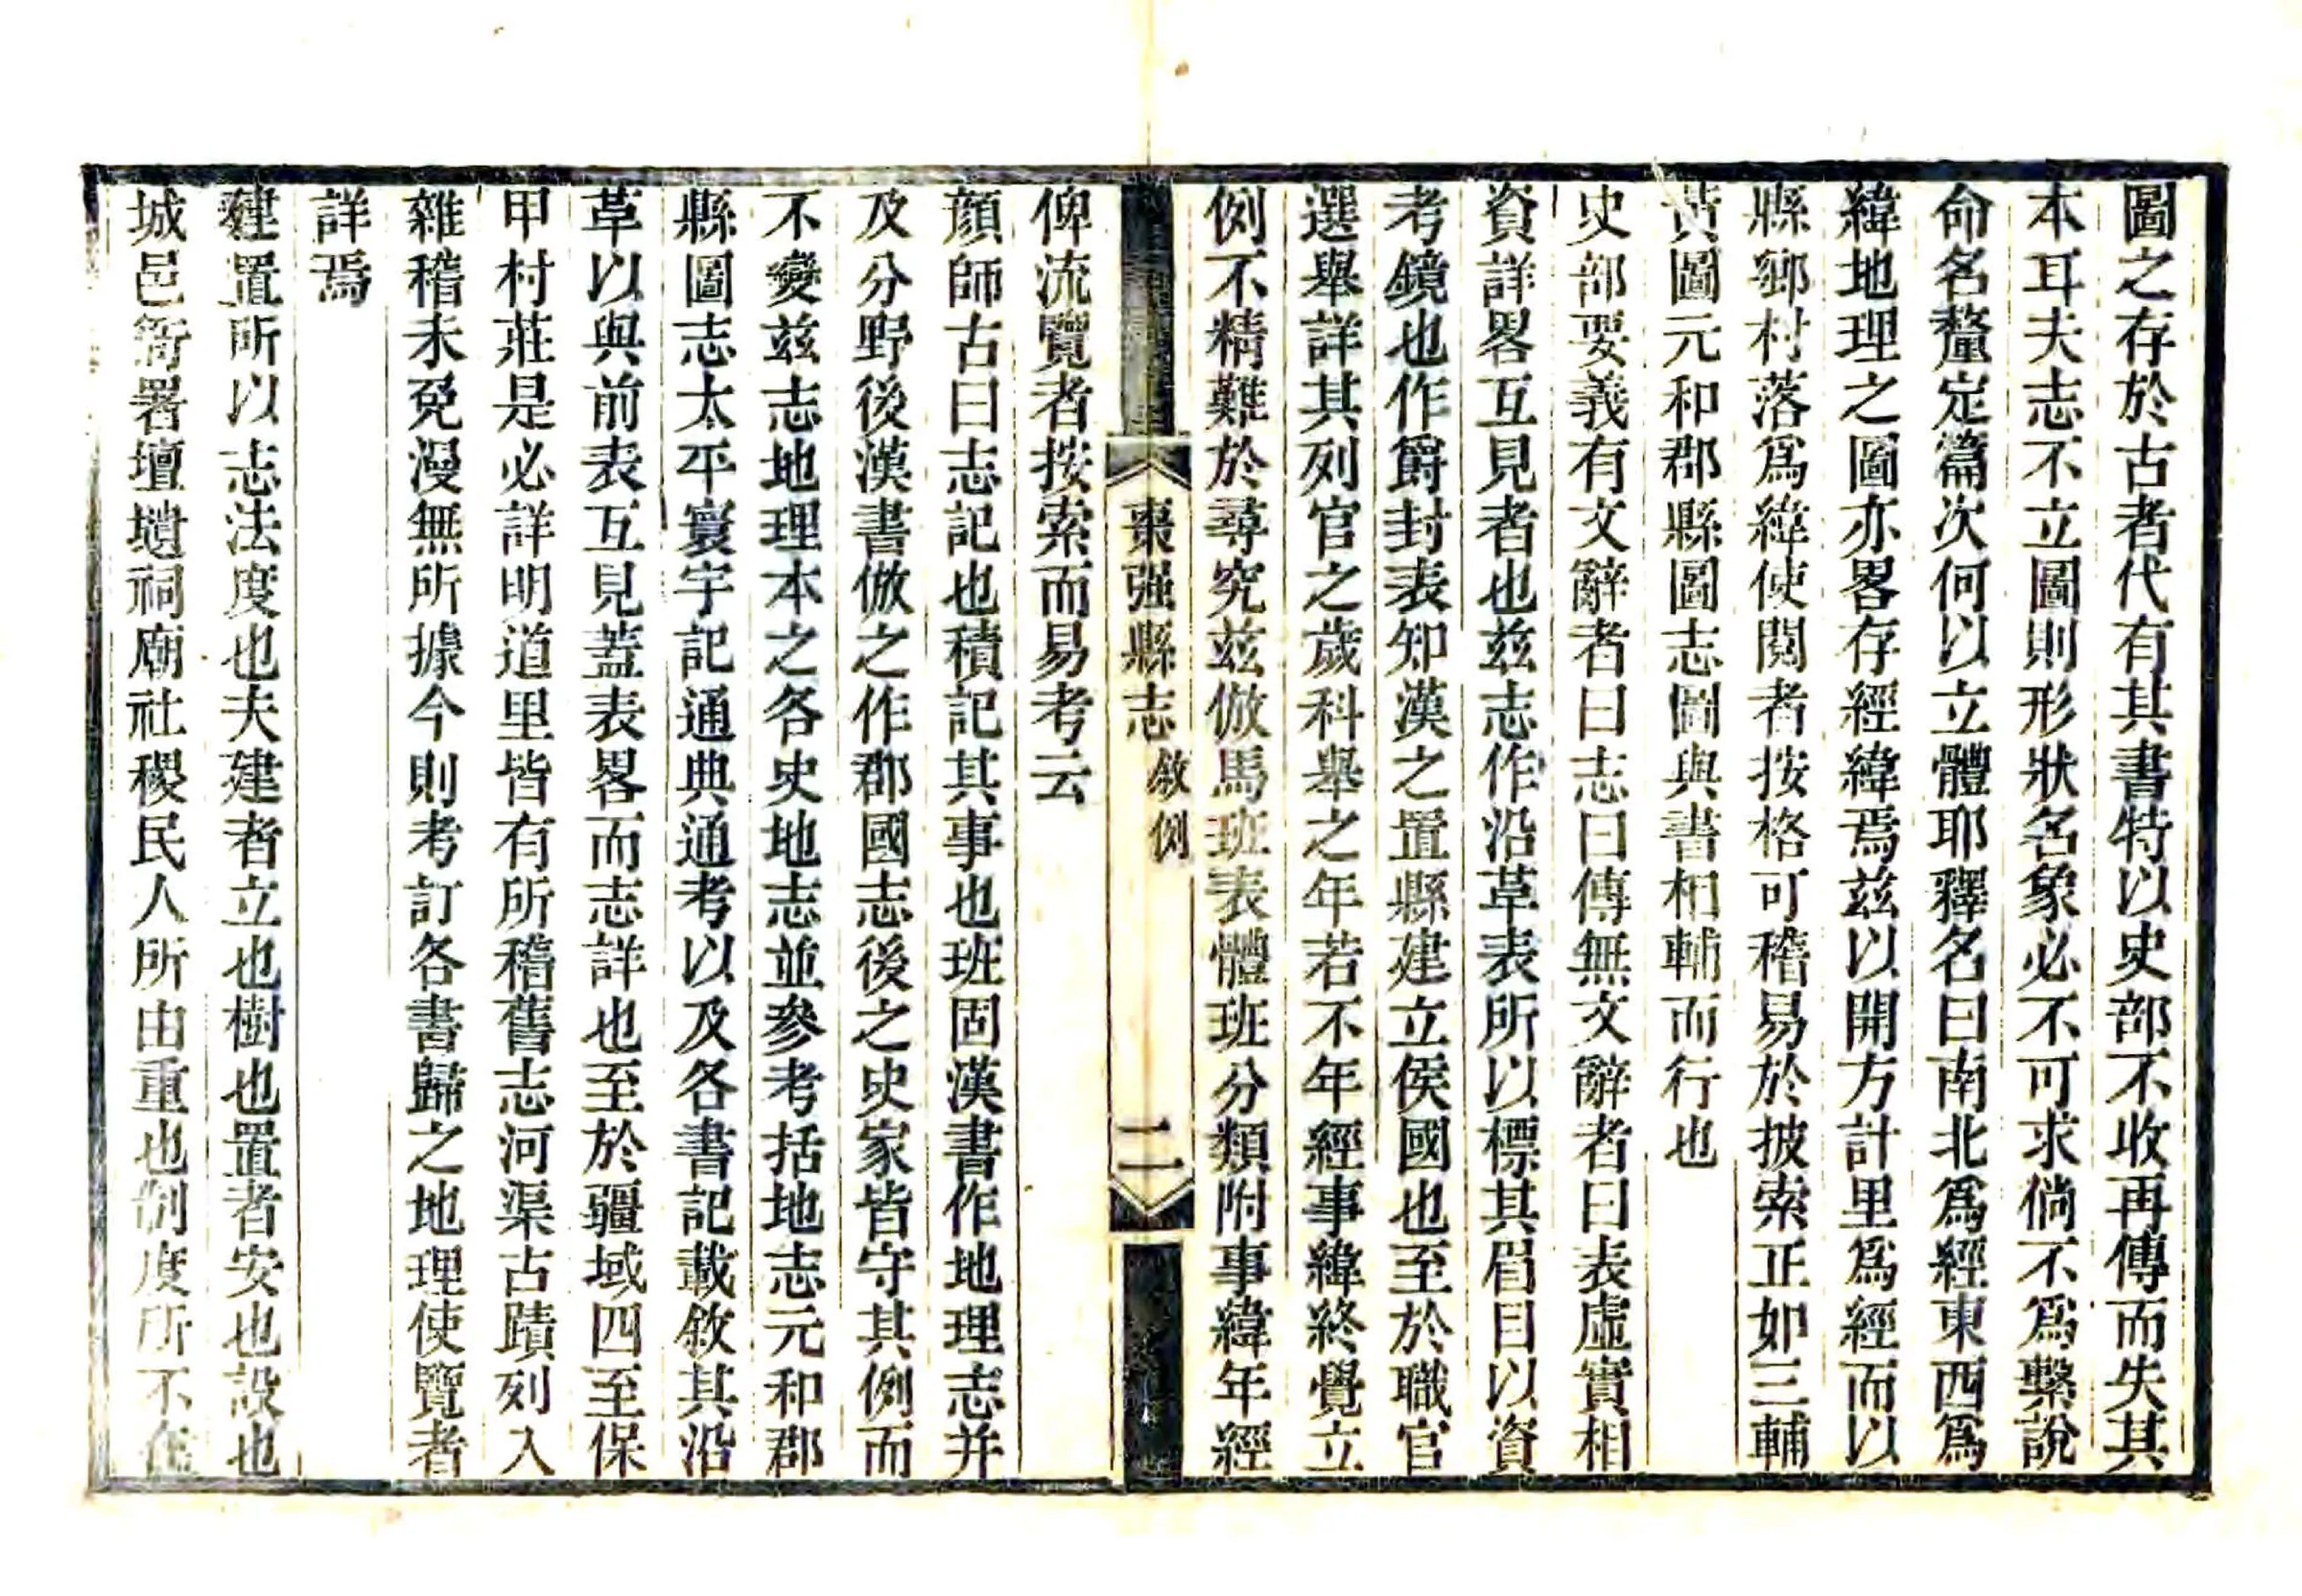 圖之存於古者代有其書特以史部不收再傳而失其
本耳夫志不立圖則形狀名象必不可求倘不爲繫說
命名釐定篇次何以立體耶釋名曰南北爲經東西爲
緯地理之圖亦畧存經緯焉兹以開方計里爲經而以
縣鄉村落爲緯使閱者按格可稽易於披索正如三輔
黃圖元和郡縣圖志圖與書相輔而行也
史部要義有文辭者曰志曰傳無文辭者曰表虛實相
資詳畧互見者也兹志作沿革表所以標其眉目以資
考鏡也作爵封表知漢之置縣建立侯國也至於職官
選舉詳其列官之歲科舉之年若不年經事緯終覺立
例不精難於尋究兹倣馬班表體班分類附事緯年經
棗强縣志 敘例 二
俾流覽者按索而易考云
顏師古曰志記也積記其事也班固漢書作地理志并
及分野後漢書倣之作郡國志後之史家皆守其例而
不變兹志地理本之各史地志並參考括地志元和郡
縣圖志太平寰宇記通典通考以及各書記載敘其沿
革以與前表互見蓋表畧而志詳也至於疆域四至保
甲村莊是必詳明道里皆有所稽舊志河渠古蹟列入
雜稽未免漫無所據今則考訂各書歸之地理使覽者
詳焉
建置所以志法度也夫建者立也樹也置者安也設也
城邑衙署壇壝祠廟社稷民人所由重也制度所不